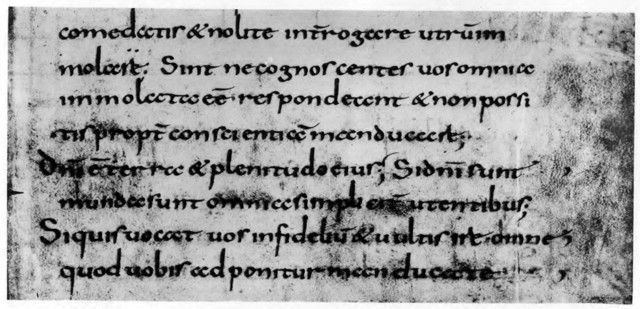 comedatis & nolite int̄rogare utrū im
molat̄; Sint ne cognoscentes uos omnia
immolata eē respondeant & non possi
tis propt̄ conscientiā manducare;
Dn̄i ē terra & plenitudo eius; Si dn̄i sunt
munda sunt omnia utentibus;
Siquis uocat uos infideliū & uultis ire omne
quod uobis adponitur manducate